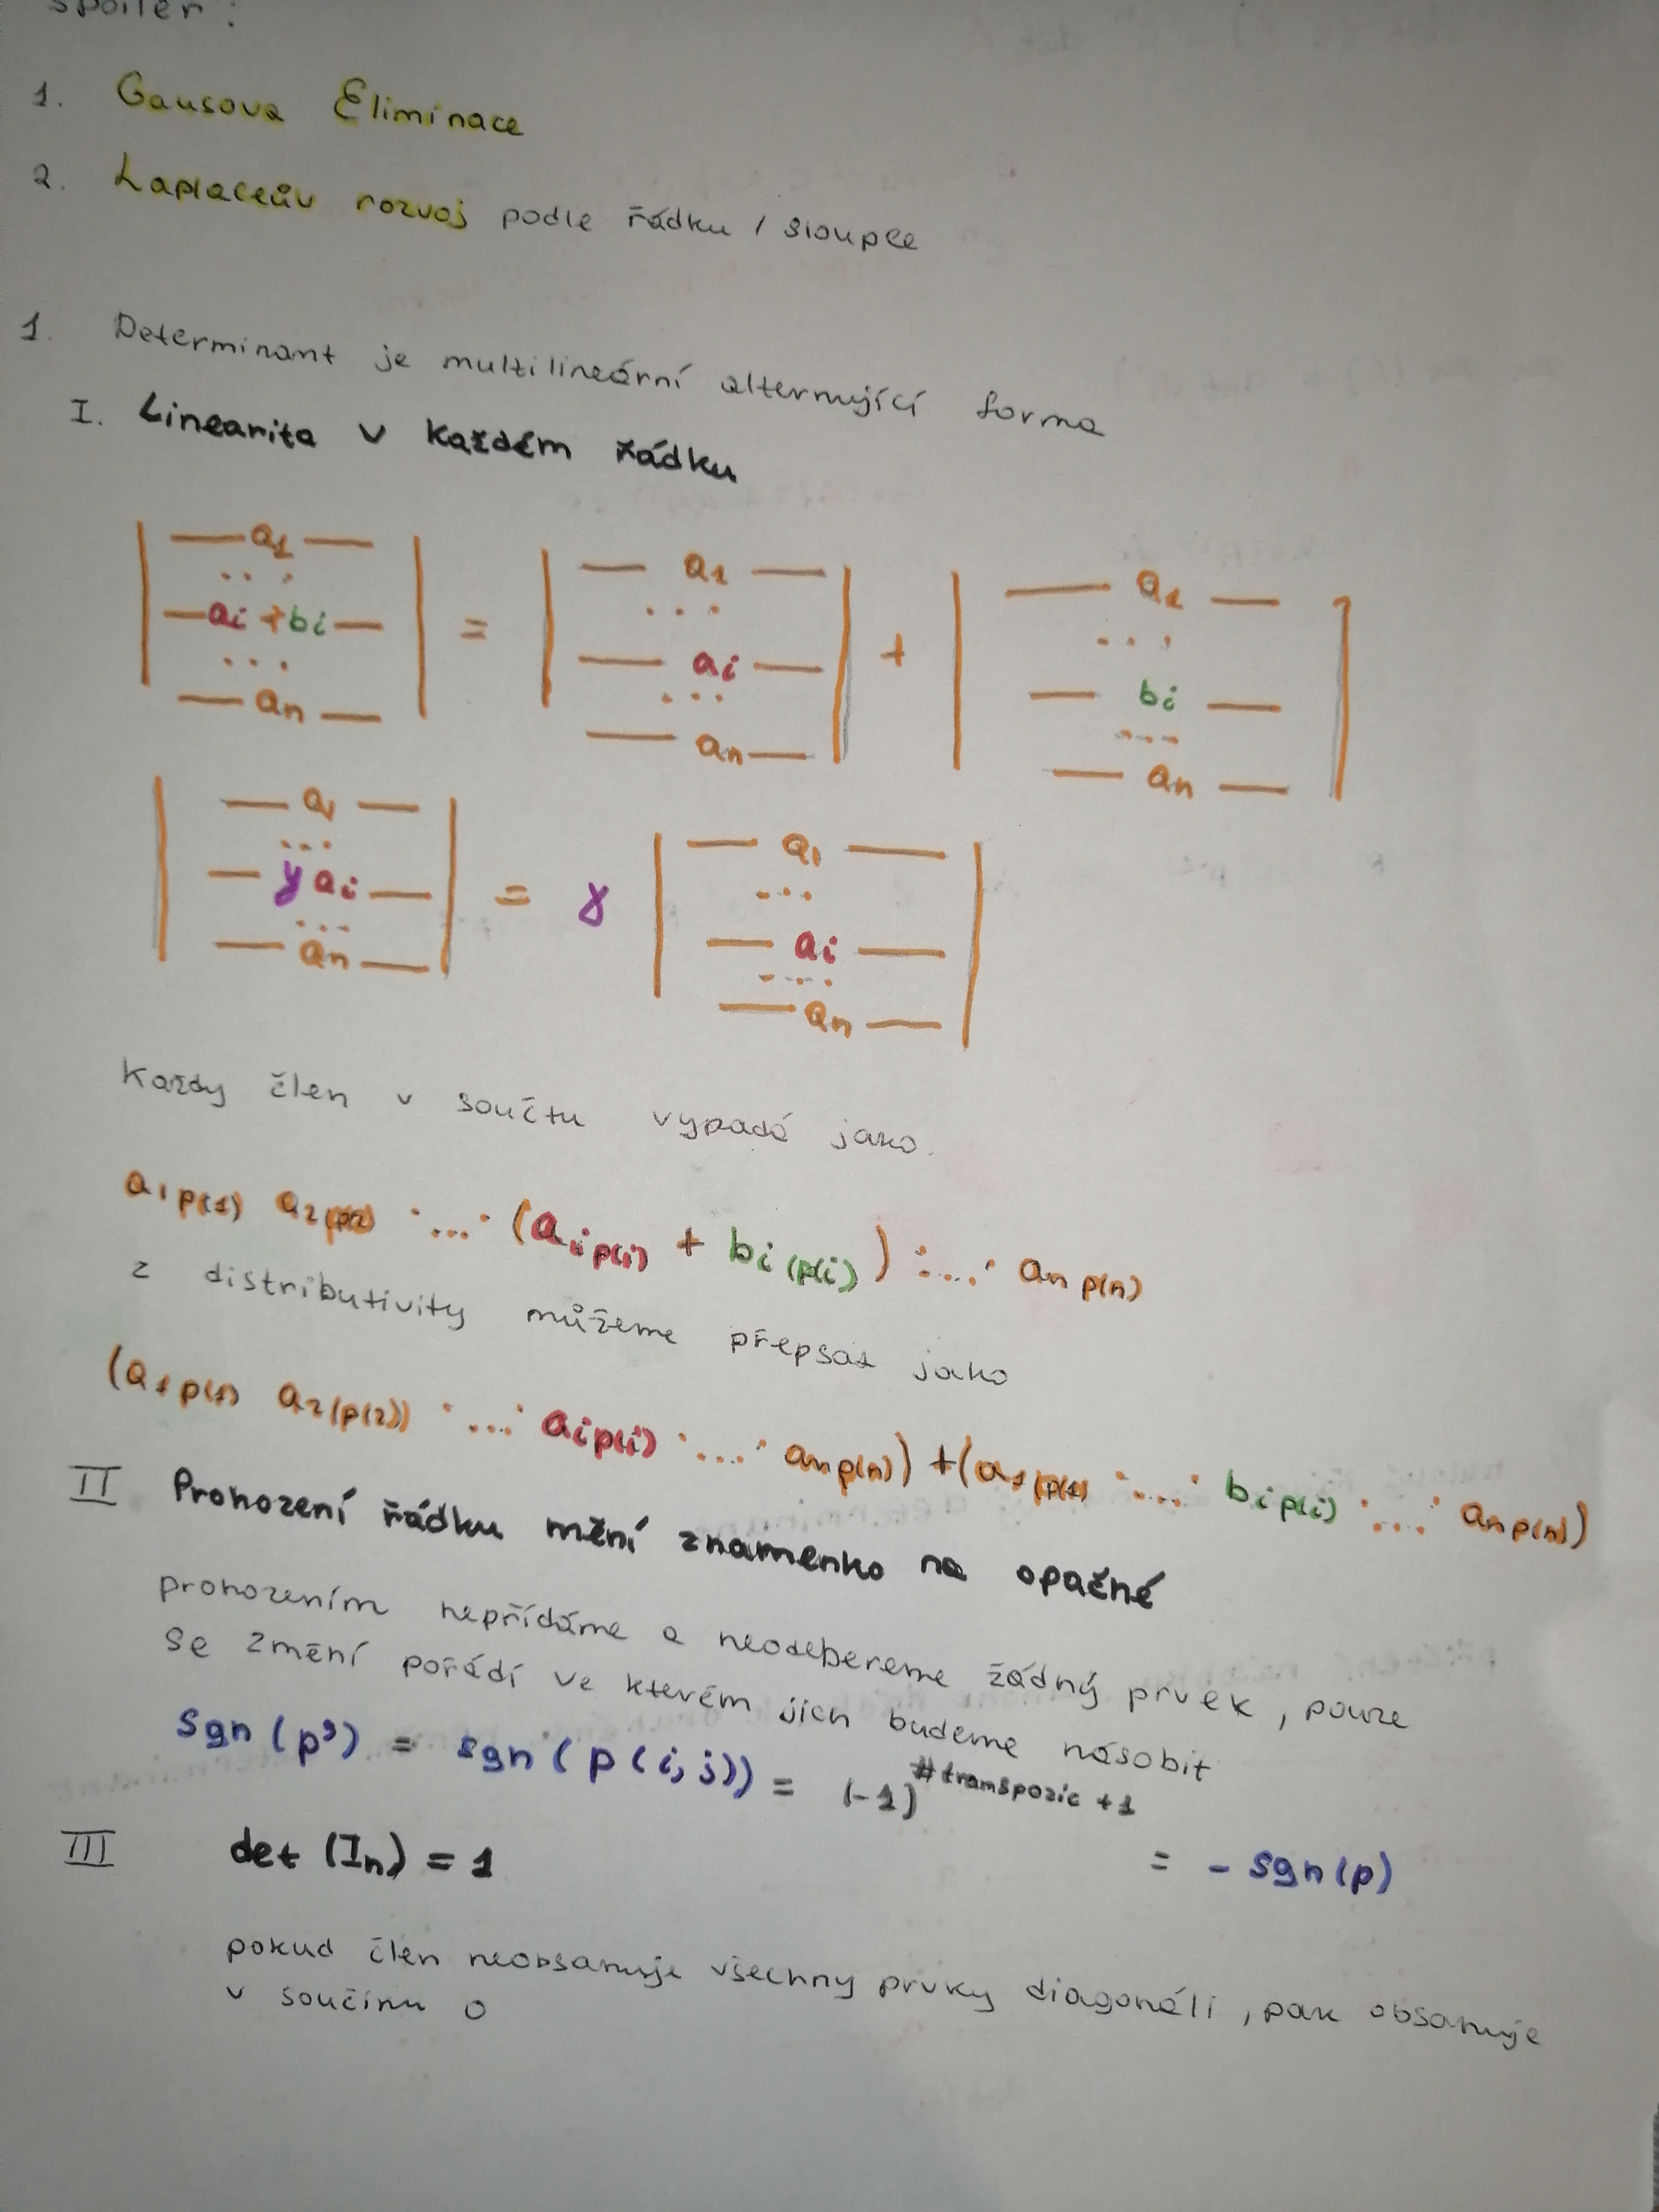 spoiler:
1. Gausova Eliminace
2. Laplaceův rozvoj podle řádku / sloupce
1. Determinant je multilineární alternující forma
I. Linearita v každém řádku
| — a1 — ... — ai + bi — ... — an — | = | — a1 — ... — ai — ... — an — | + | — a1 — ... — bi — ... — an — |
| — a1 — ... — γ ai — ... — an — | = γ | — a1 — ... — ai — ... — an — |
Každy člen v součtu vypadá jako.
a1p(1) a2(p2) · ... · (aip(i) + bi(p(i)) · ... · anp(n)
z distributivity můžeme přepsat jako
(a1p(1) a2(p(2)) · ... · aip(i) · ... · anp(n)) + (a1(p(1) · ... · bip(i) · ... · anp(n))
II Prohození řádku mění znamenko na opačné
prohozením nepřídáme a neodebereme žádný prvek, pouze
se změní pořádí ve kterém jich budeme násobit
sgn(p') = sgn(p(i,j)) = (-1)^#transpozic +1
= - sgn(p)
III det (In) = 1
pokud člen neobsahuje všechny prvky diagonáli, pak obsahuje
v součinu 0